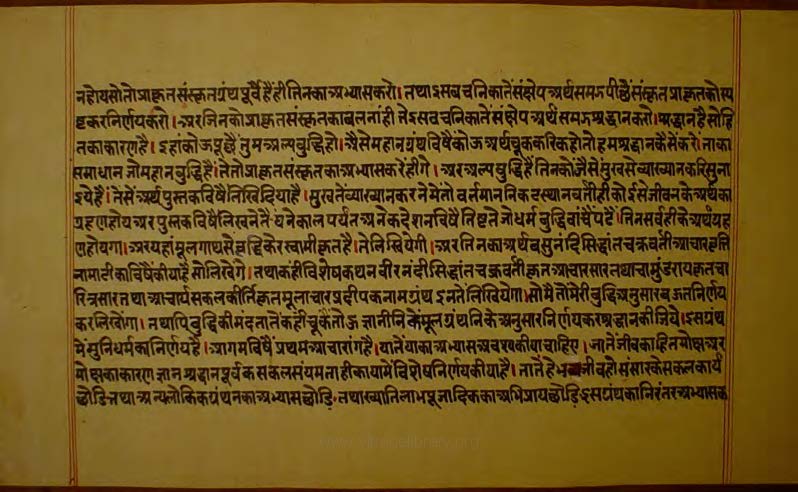 नहोय सो तो प्राकृत संस्कृत ग्रंथ पूर्वै हैं ही तिनका अभ्यास करो। तथा इस वचनिकातें संक्षेप अर्थ समझ पीछैं संस्कृत प्राकृतको स्प
ष्ट कर निर्णय करो। अर जिनको प्राकृत संस्कृतका बल नांही ते इस वचनिकातें संक्षेप अर्थ समझ श्रद्धान करो। श्रद्धान है सो हि
तका कारण है। इहां कोऊ पूछै तुम अल्पबुद्धि हो। अैसे महान ग्रंथ विषैं कोऊ अर्थ चूक करि कहो तो हम श्रद्धान कैसे करें। ताका
समाधान जो महान बुद्धि हैं। ते तो प्राकृत संस्कृतका अभ्यास करेंहीगे। अर अल्प बुद्धि हैं तिनकों जैसें मुखसे व्याख्यान करि सुना
इये है। तैसें अर्थ पुस्तक विषैं लिखि दिया है। मुखतें व्याख्यान करनेमें तो वर्तमान निकट स्थानवर्ती ही कोई से जीवनके अर्थका
ग्रहण होय अर पुस्तक विषैं लिखनेतैं घनेकाल पर्यंत अनेक देशन विषैं तिष्टते जो धर्मबुद्धि वांचें पढें। तिन सर्वहीके अर्थ ग्रह
ण होयगा। अर यहां मूलगाथा से वट्टिकेर स्वामी कृत है। ते लिखियेगी। अर तिनका अर्थ वसुनंदि सिद्धांत चक्रवर्ती आचारवृत्ति
नामा टीका विषैं कीया है सो लिखेंगे। तथा कहीं विशेष कथन वीरनंदी सिद्धांत चक्रवर्ती कृत आचारसार तथा चामुंडराय कृत चा
रित्रसार तथा आचार्य सकलकीर्ति कृत मूलाचार प्रदीपक नाम ग्रंथ इनतें लिखियेगा। सो मैं तो मेरी बुद्धि अनुसार बऊत निर्णय
कर लिखोंगा। तथापि बुद्धिकी मंदतातें कहीं चूकें तोऊ ज्ञानीनिकें मूलग्रंथनिके अनुसार निर्णय कर श्रद्धान कीजिये। इस ग्रंथ
में मुनिधर्मका निर्णय है। आगम विषैं प्रथम आचारांग है। यातें याका अभ्यास अवश्य कीया चाहिए। जातें जीवका हित मोक्ष अर
मोक्षका कारण ज्ञान श्रद्धान पूर्वक सकल संयम ताहीका यामें विशेष निर्णय कीया है। तातें हे भव्य जीव हो संसारके सकल कार्य
छोडि तथा अन्य लौकिक ग्रंथनका अभ्यास छोडि, तथा ख्याति लाभ पूजादिकका अभिप्राय छोडि इस ग्रंथका निरंतर अभ्यास क